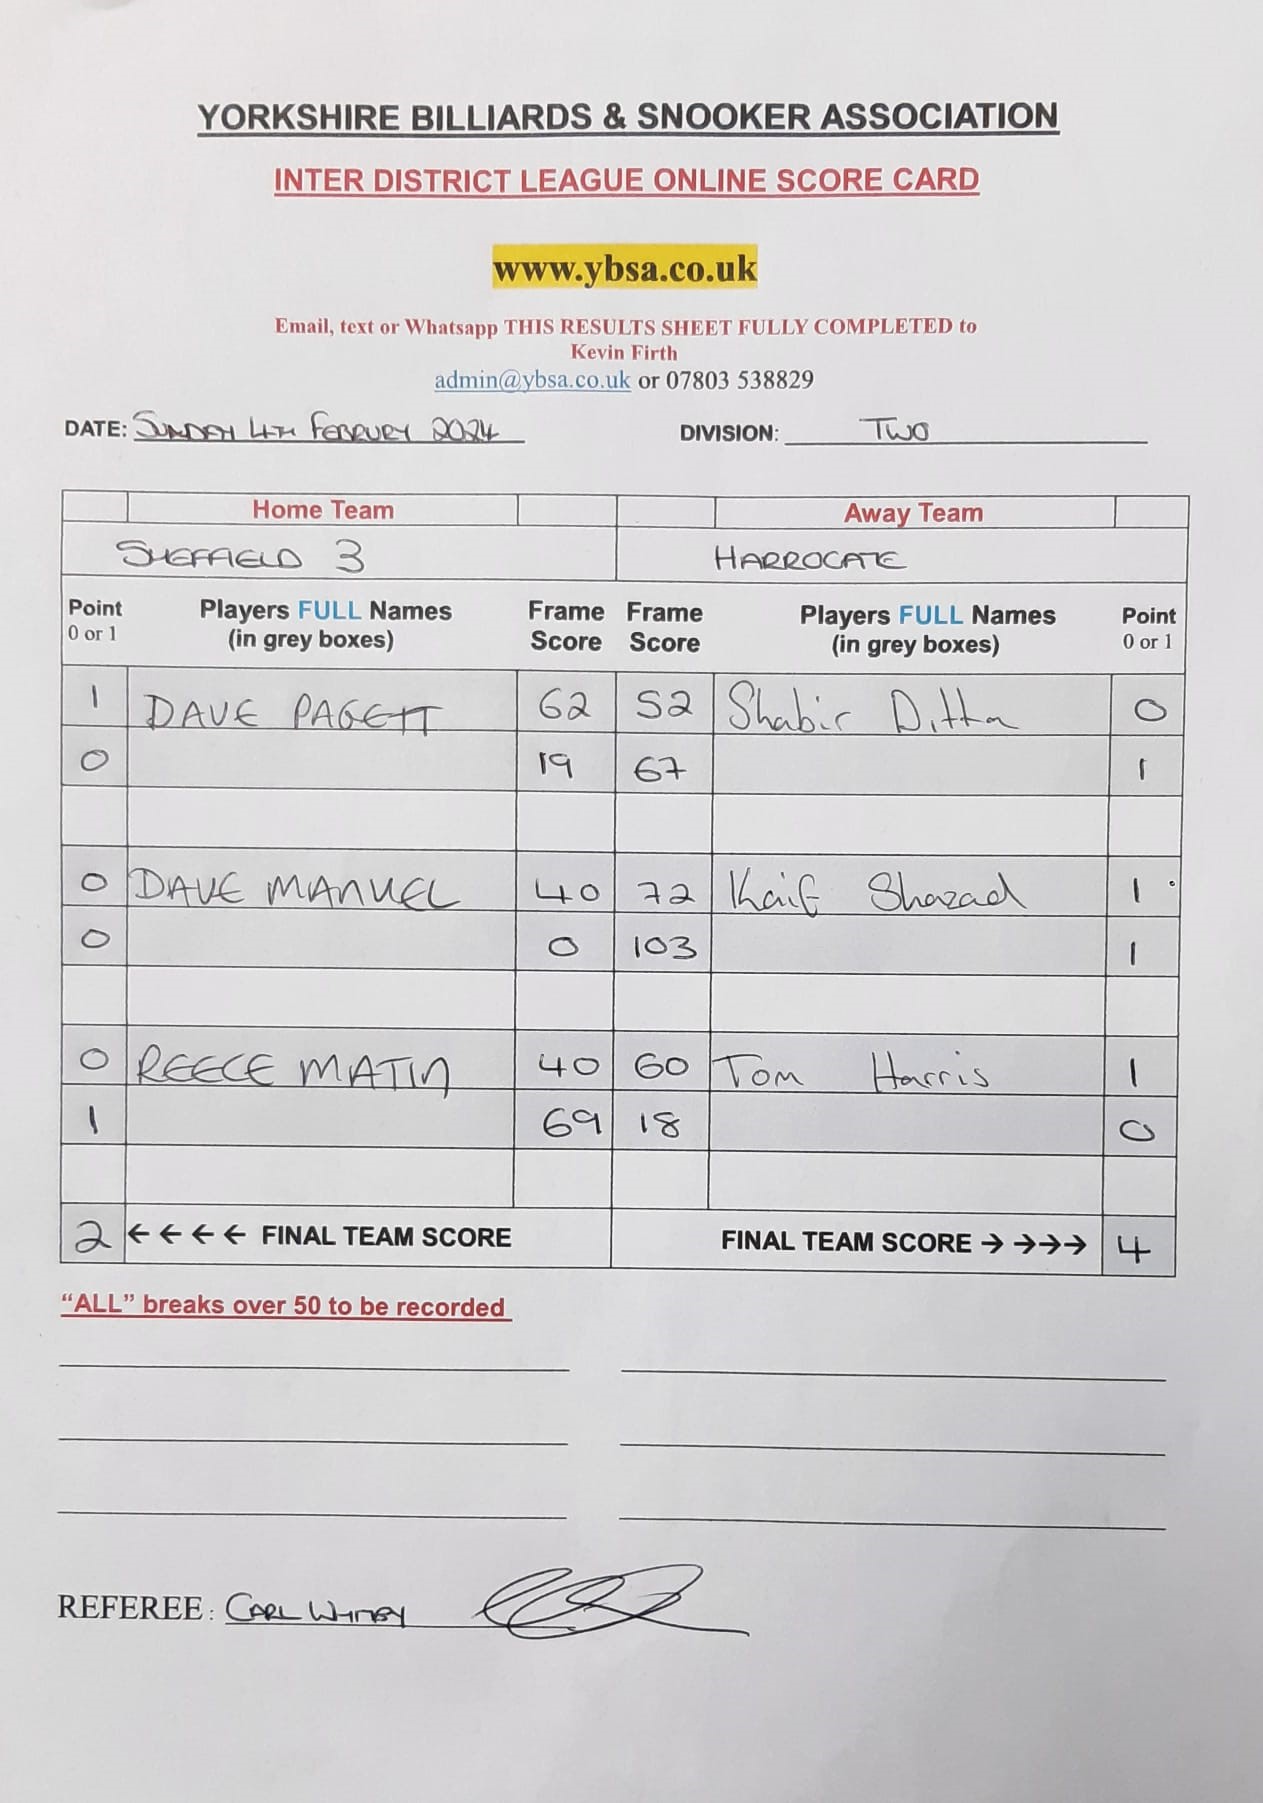 YORKSHIRE BILLIARDS & SNOOKER ASSOCIATION
INTER DISTRICT LEAGUE ONLINE SCORE CARD
www.ybsa.co.uk
Email, text or Whatsapp THIS RESULTS SHEET FULLY COMPLETED to
Kevin Firth
admin@ybsa.co.uk or 07803 538829
DATE: SUNDAY 4TH FEBRUERY 2024 DIVISION: TWO
Home Team Away Team
SHEFFIELD 3 HARROGATE
Point Players FULL Names Frame Frame Players FULL Names Point
0 or 1 (in grey boxes) Score Score (in grey boxes) 0 or 1
1 DAVE PAGETT 62 52 Shabir Ditta 0
0 19 67 1
0 DAVE MANUEL 40 72 Kaif Shazad 1
0 0 103 1
0 REECE MATIN 40 60 Tom Harris 1
1 69 18 0
2 ←←←← FINAL TEAM SCORE FINAL TEAM SCORE → →→→ 4
“ALL” breaks over 50 to be recorded
REFEREE: CARL WHITBY